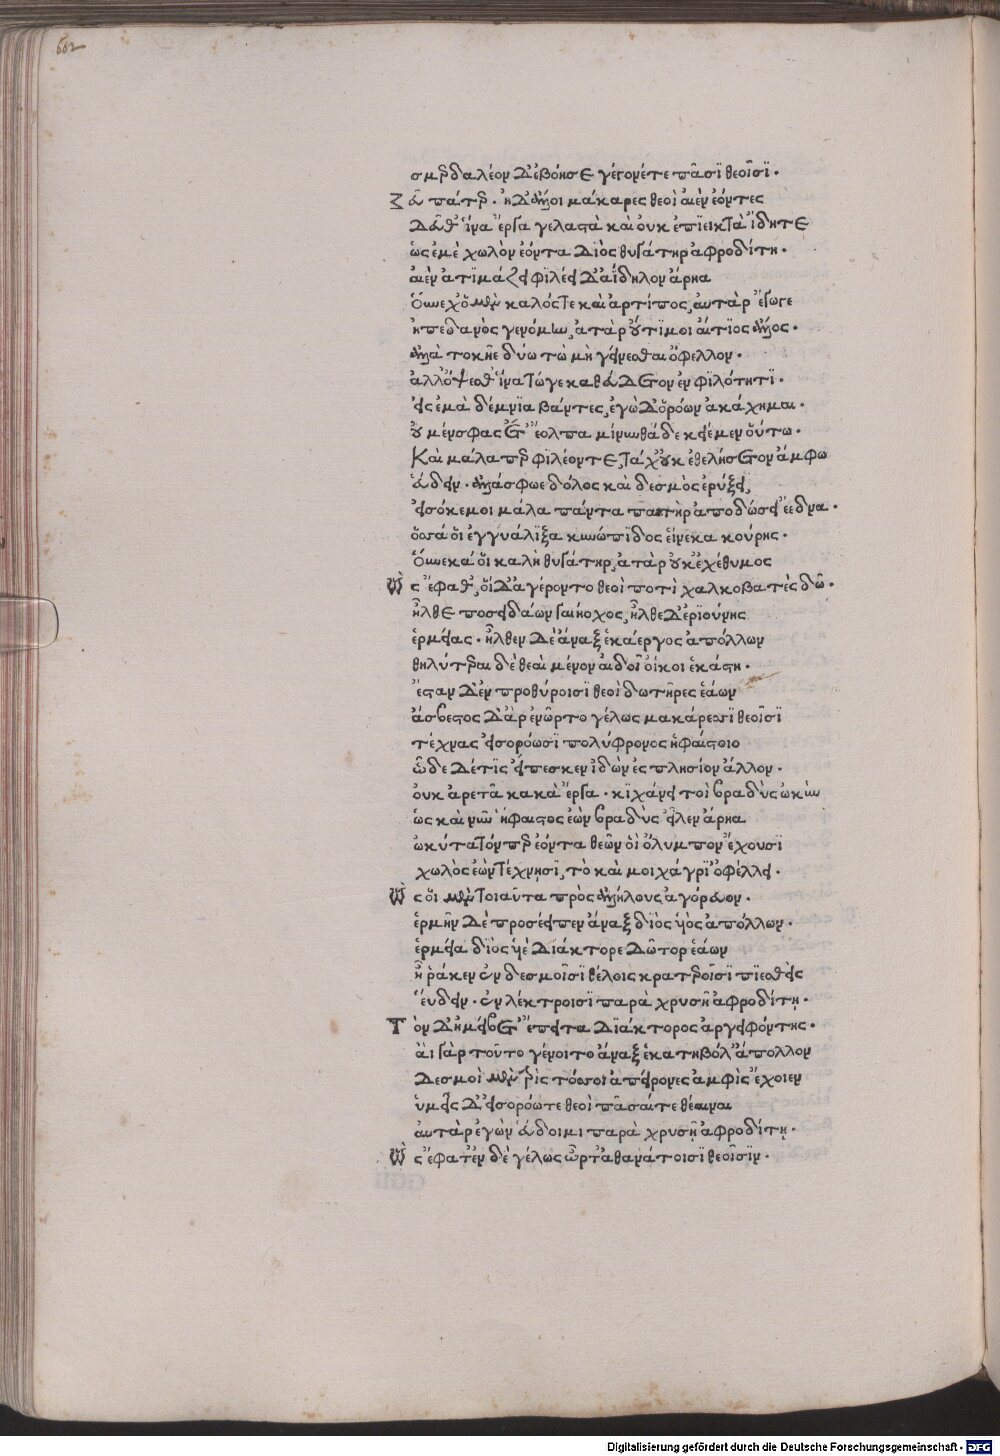 602
σμερδαλέον δ' ἐβόησε γέγωνέτε πᾶσϊ θεοῖσϊ.
Ζεῦ πάτερ. ἠδ' ἄλλοι μάκαρες θεοὶ αἰὲν ἐόντες
Δεῦθ' ἵνα ἔργα γελαστὰ καὶ οὐκ ἐπιεικτὰ ἴδητε
ὡς ἐμὲ χωλὸν ἐόντα Διὸς θυγάτηρ ἀφροδίτη.
αἰὲν ἀτϊμάζει φϊλέει δ' ἀΐδηλον ἄρηα
Οὕνεχ' ὁ μὲν καλός τε καὶ ἀρτίπος, αὐτὰρ ἔγωγε
ἠπεδανὸς γενόμην, ἀτὰρ οὔτϊμοι αἴτϊος ἄλλος.
ἀλλὰ τοκῆε δύω τὼ μὴ γείνεσθαι ὄφελλον.
ἀλλ' ὄψεσθ' ἵνα τώγε καθεύδετον ἐν φϊλότητϊ.
εἰς ἐμὰ δέμνϊα βάντες, ἐγὼ δ' ὁρόων ἀκάχημαι.
οὐ μέν σφας ἔτ' ἔολπα μίνυνθάδε κειέμεν οὕτω.
Καὶ μάλα περ φϊλέοντε, τάχ' οὐκ ἐθελήσετον ἄμφω
εὕδειν. ἀλλάσφωε δόλος καὶ δεσμὸς ἐρύξει,
εἰσόκεμοι μάλα πάντα πατὴρ ἀποδώσει ἔεδνα.
ὅσσά οἱ ἐγγυάλϊξα κυνώπϊδος εἵνεκα κούρης.
Οὕνεκά οἱ καλὴ θυγάτηρ, ἀτὰρ οὐκ ἐχέθυμος
Ὣς ἔφαθ', οἱ δ' ἀγέροντο θεοὶ ποτὶ χαλκοβατὲς δῶ.
ἦλθε ποσειδάων γαιήοχος, ἦλθε δ' ἐρϊούνης
ἑρμείας. ἦλθεν δὲ ἄναξ ἑκάεργος ἀπόλλων
θηλύτεραι δὲ θεαὶ μένον αἰδοῖ οἴκοι ἑκάστη.
ἔσταν δ' ἐν προθύροισι θεοὶ δωτῆρες ἑάων
ἄσβεστος δ' ἄρ ἐνῶρτο γέλως μακάρεσσϊ θεοῖσϊ
τέχνας εἰσορόωσϊ πολύφρονος ἡφαίστοιο
ὧδε δέ τϊς εἴπεσκεν ἰδὼν ἐς πλησίον ἄλλον.
οὐκ ἀρετᾶ κακὰ ἔργα. κϊχάνει τοὶ βραδὺς ὠκὺν
ὡς καὶ νῦν ἥφαιστος ἐὼν βραδὺς εἷλεν ἄρηα
ὠκύτατόν περ ἐόντα θεῶν οἳ ὄλυμπον ἔχουσϊ
χωλὸς ἐὼν τέχνησϊ, τὸ καὶ μοιχάγρϊ' ὀφέλλει.
Ὣς οἱ μὲν τοιαῦτα πρὸς ἀλλήλους ἀγόρευον.
ἑρμῆν δὲ προσέειπεν ἄναξ διὸς ὑὸς ἀπόλλων.
ἑρμεία διὸς ὑὲ Διάκτορε Δῶτορ ἑάων
ἦ ῥάκεν ἐν δεσμοῖσϊ θέλοις κρατεροῖσϊ πϊεσθεὶς
εὕδειν. ἐν λέκτροισϊ παρὰ χρυσῆ ἀφροδίτῃ.
Τὸν δ' ἠμείβετ' ἔπειτα Διάκτορος ἀργειφόντης.
αἲ γὰρ τοῦτο γένοιτο ἄναξ ἑκατηβόλ' ἄπολλον
Δεσμοὶ μὲν τρὶς τόσσοι ἀπείρονες ἀμφὶς ἔχοιεν
ὑμεῖς δ' εἰσορόωτε θεοὶ πᾶσάι τε θέαιναι
αὐτὰρ ἐγὼν εὕδοιμι παρὰ χρυσῆ ἀφροδίτῃ.
Ὣς ἔφατ' ἐν δὲ γέλως ὦρτ' ἀθανάτοισϊ θεοῖσϊν.
Digitalisierung gefördert durch die Deutsche Forschungsgemeinschaft - DFG